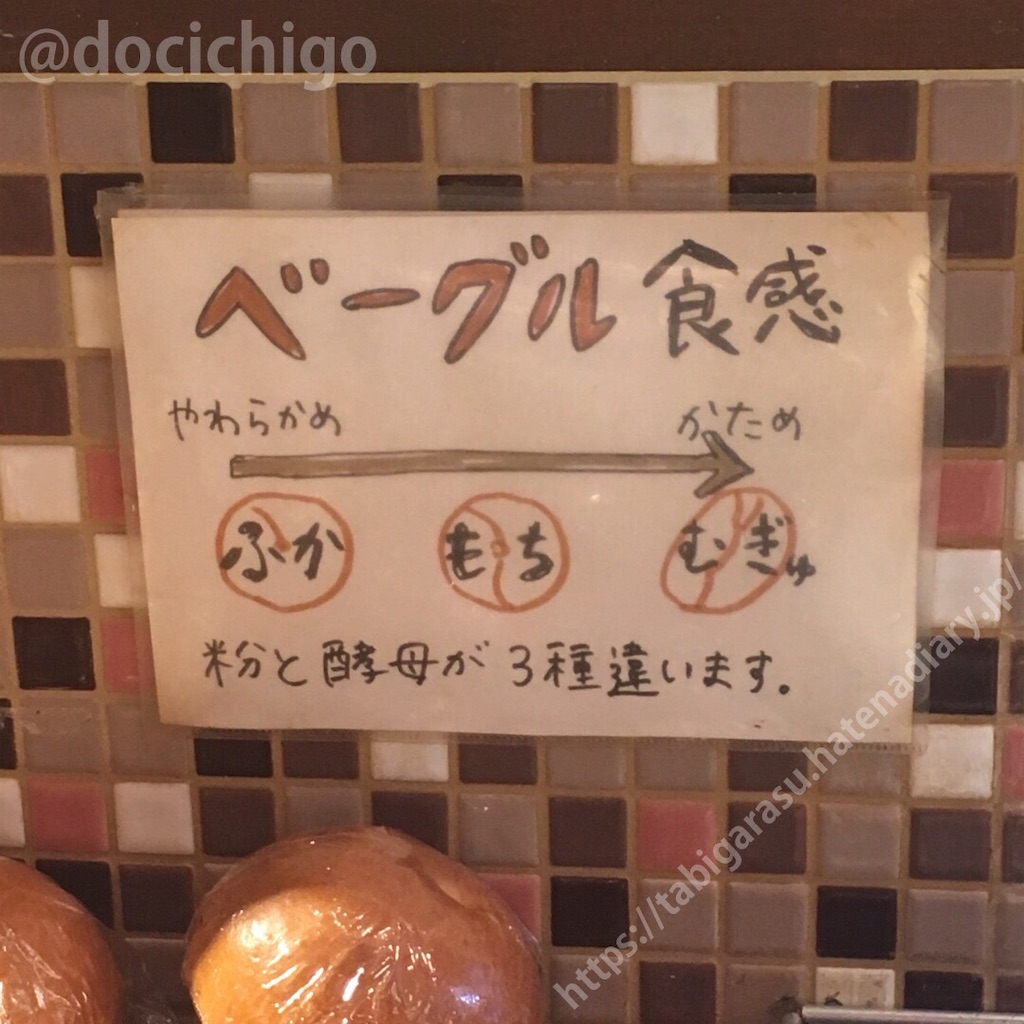 @docichigo
ベーグル食感
やわらかめ かため
ふか もち むぎゅ
粉分と酵母が3種違います。
https://tabigarasu.hatenadiary.jp/